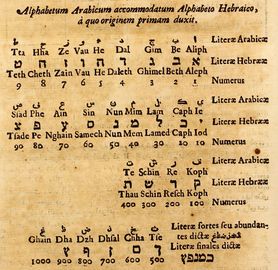 Alphabetum Arabicum accommodatum Alphabeto Hebraico,
à quo originem primam duxit.
ا ب ج د ه و ز ح ط Literæ Arabicæ
Tta Hha Ze Vau He Dal Gim Be Aleph
א ב ג ד ה ו ז ח ט Literæ Hebrææ
Teth Cheth Zain Vau He Daleth Ghimel Beth Aleph
9 8 7 6 5 4 3 2 1 Numerus
ي ك ل م ن س ع ف ص Literæ Arabicæ
Sad Phe Ain Sin Nun Mim Lam Caph Ie
י כ ל מ נ ס ע פ צ Literæ Hebrææ
Tsade Pe Nghain Samech Nun Mem Lamed Caph Iod
90 80 70 60 50 40 30 20 10 Numerus
ق ر ش ت Literæ Arabicæ
Te Schin Re Koph
ק ר ש ת Literæ Hebrææ
Thau Schin Resch Koph
400 300 200 100 Numerus
ث خ ذ ض ظ غ Literæ fortes seu abundan-
Ghain Dha Dzh Dhsal Chha Tse tes dictæ
Literæ finales dictæ
1000 900 800 700 600 500